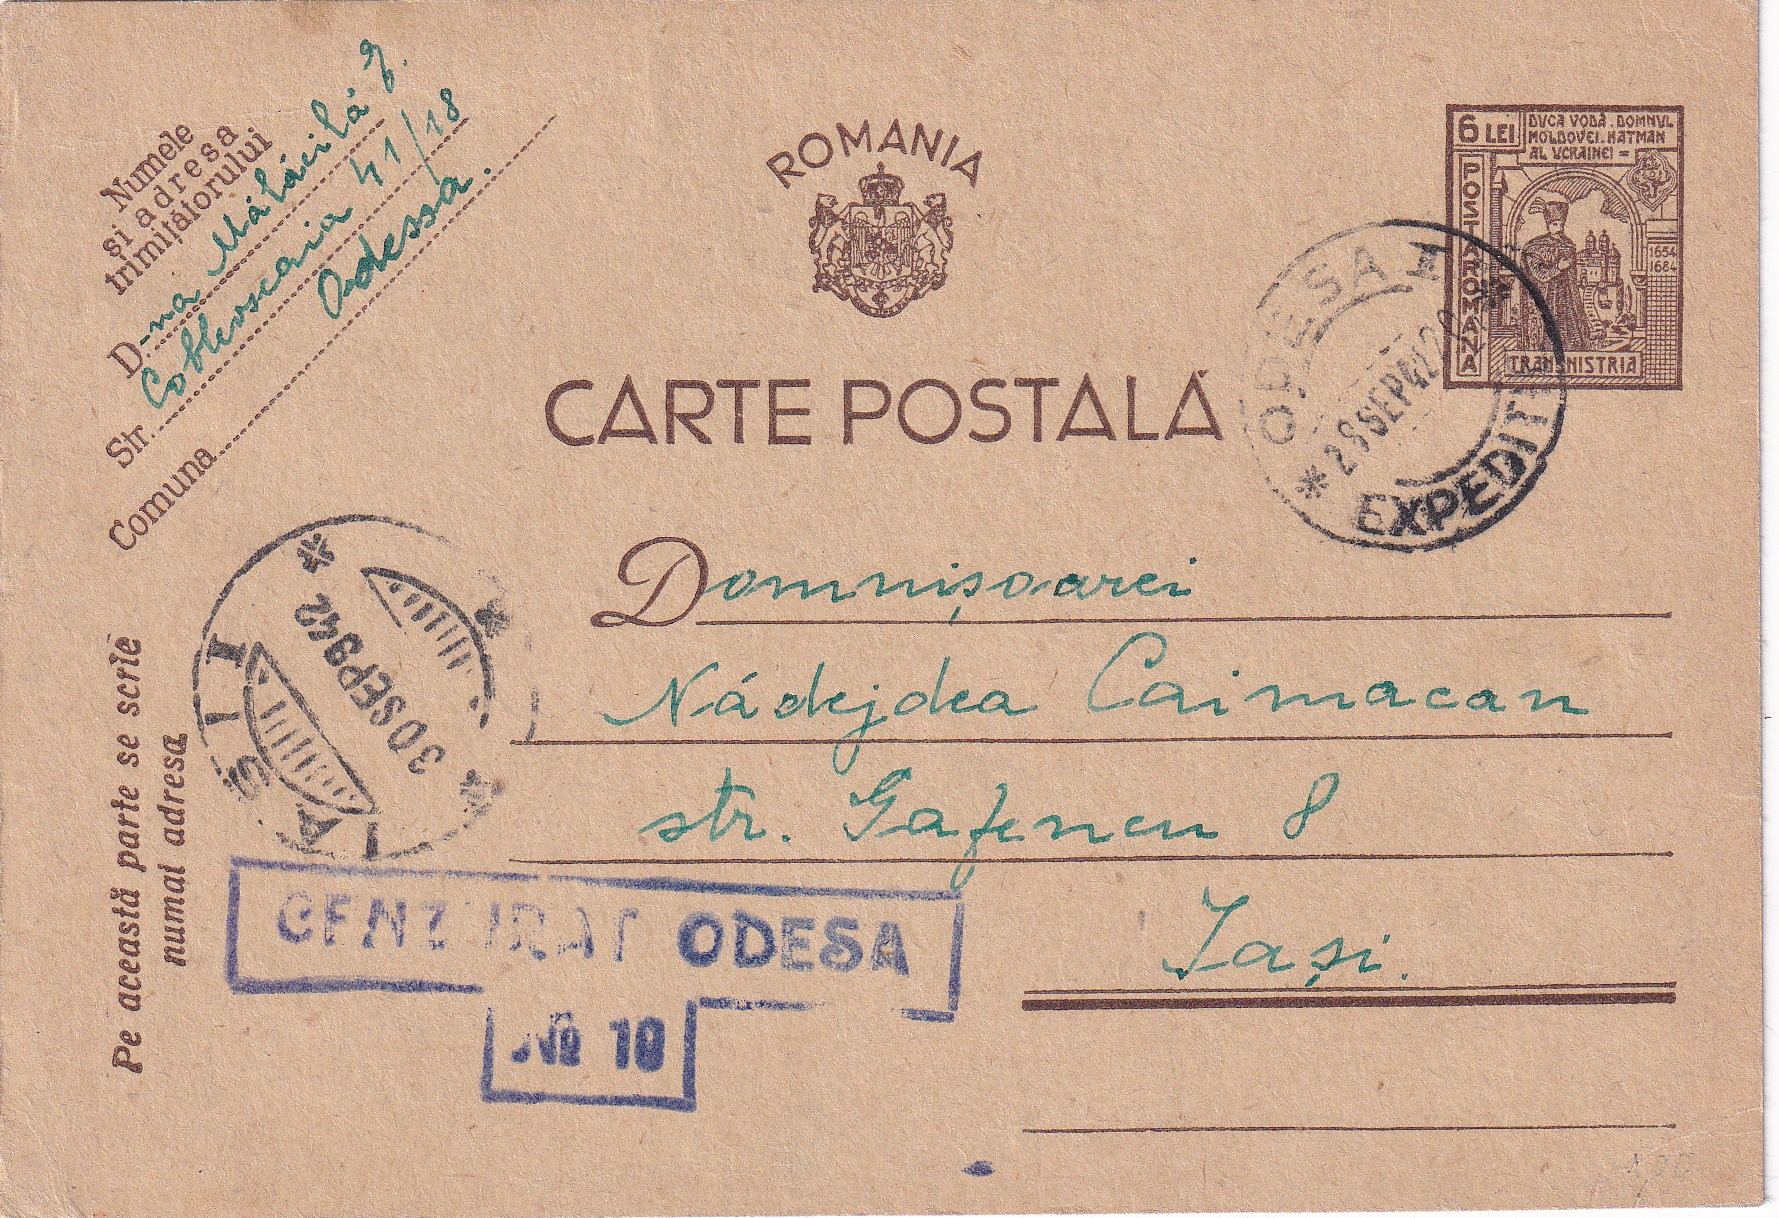 Numele
și adresa
trimițătorului
D-na Mălăeilă J.
Str. Coblevscaia 41/18
Comuna Odessa.
ROMANIA
CARTE POSTALĂ
6 LEI
DUCA VODĂ . DOMNUL
MOLDOVEI . HATMAN
AL UCRAINEI =
POSTA ROMANA
1654
1684
TRANSNISTRIA
* ODESA *
28 SEP 42 20
EXPEDITI
Domnișoarei
Nădejdea Caimacan
str. Gafencu 8
Iași.
IASI I
30 SEP 942
Pe această parte se scrie
numai adresa
CENZURAT ODESA
№ 10